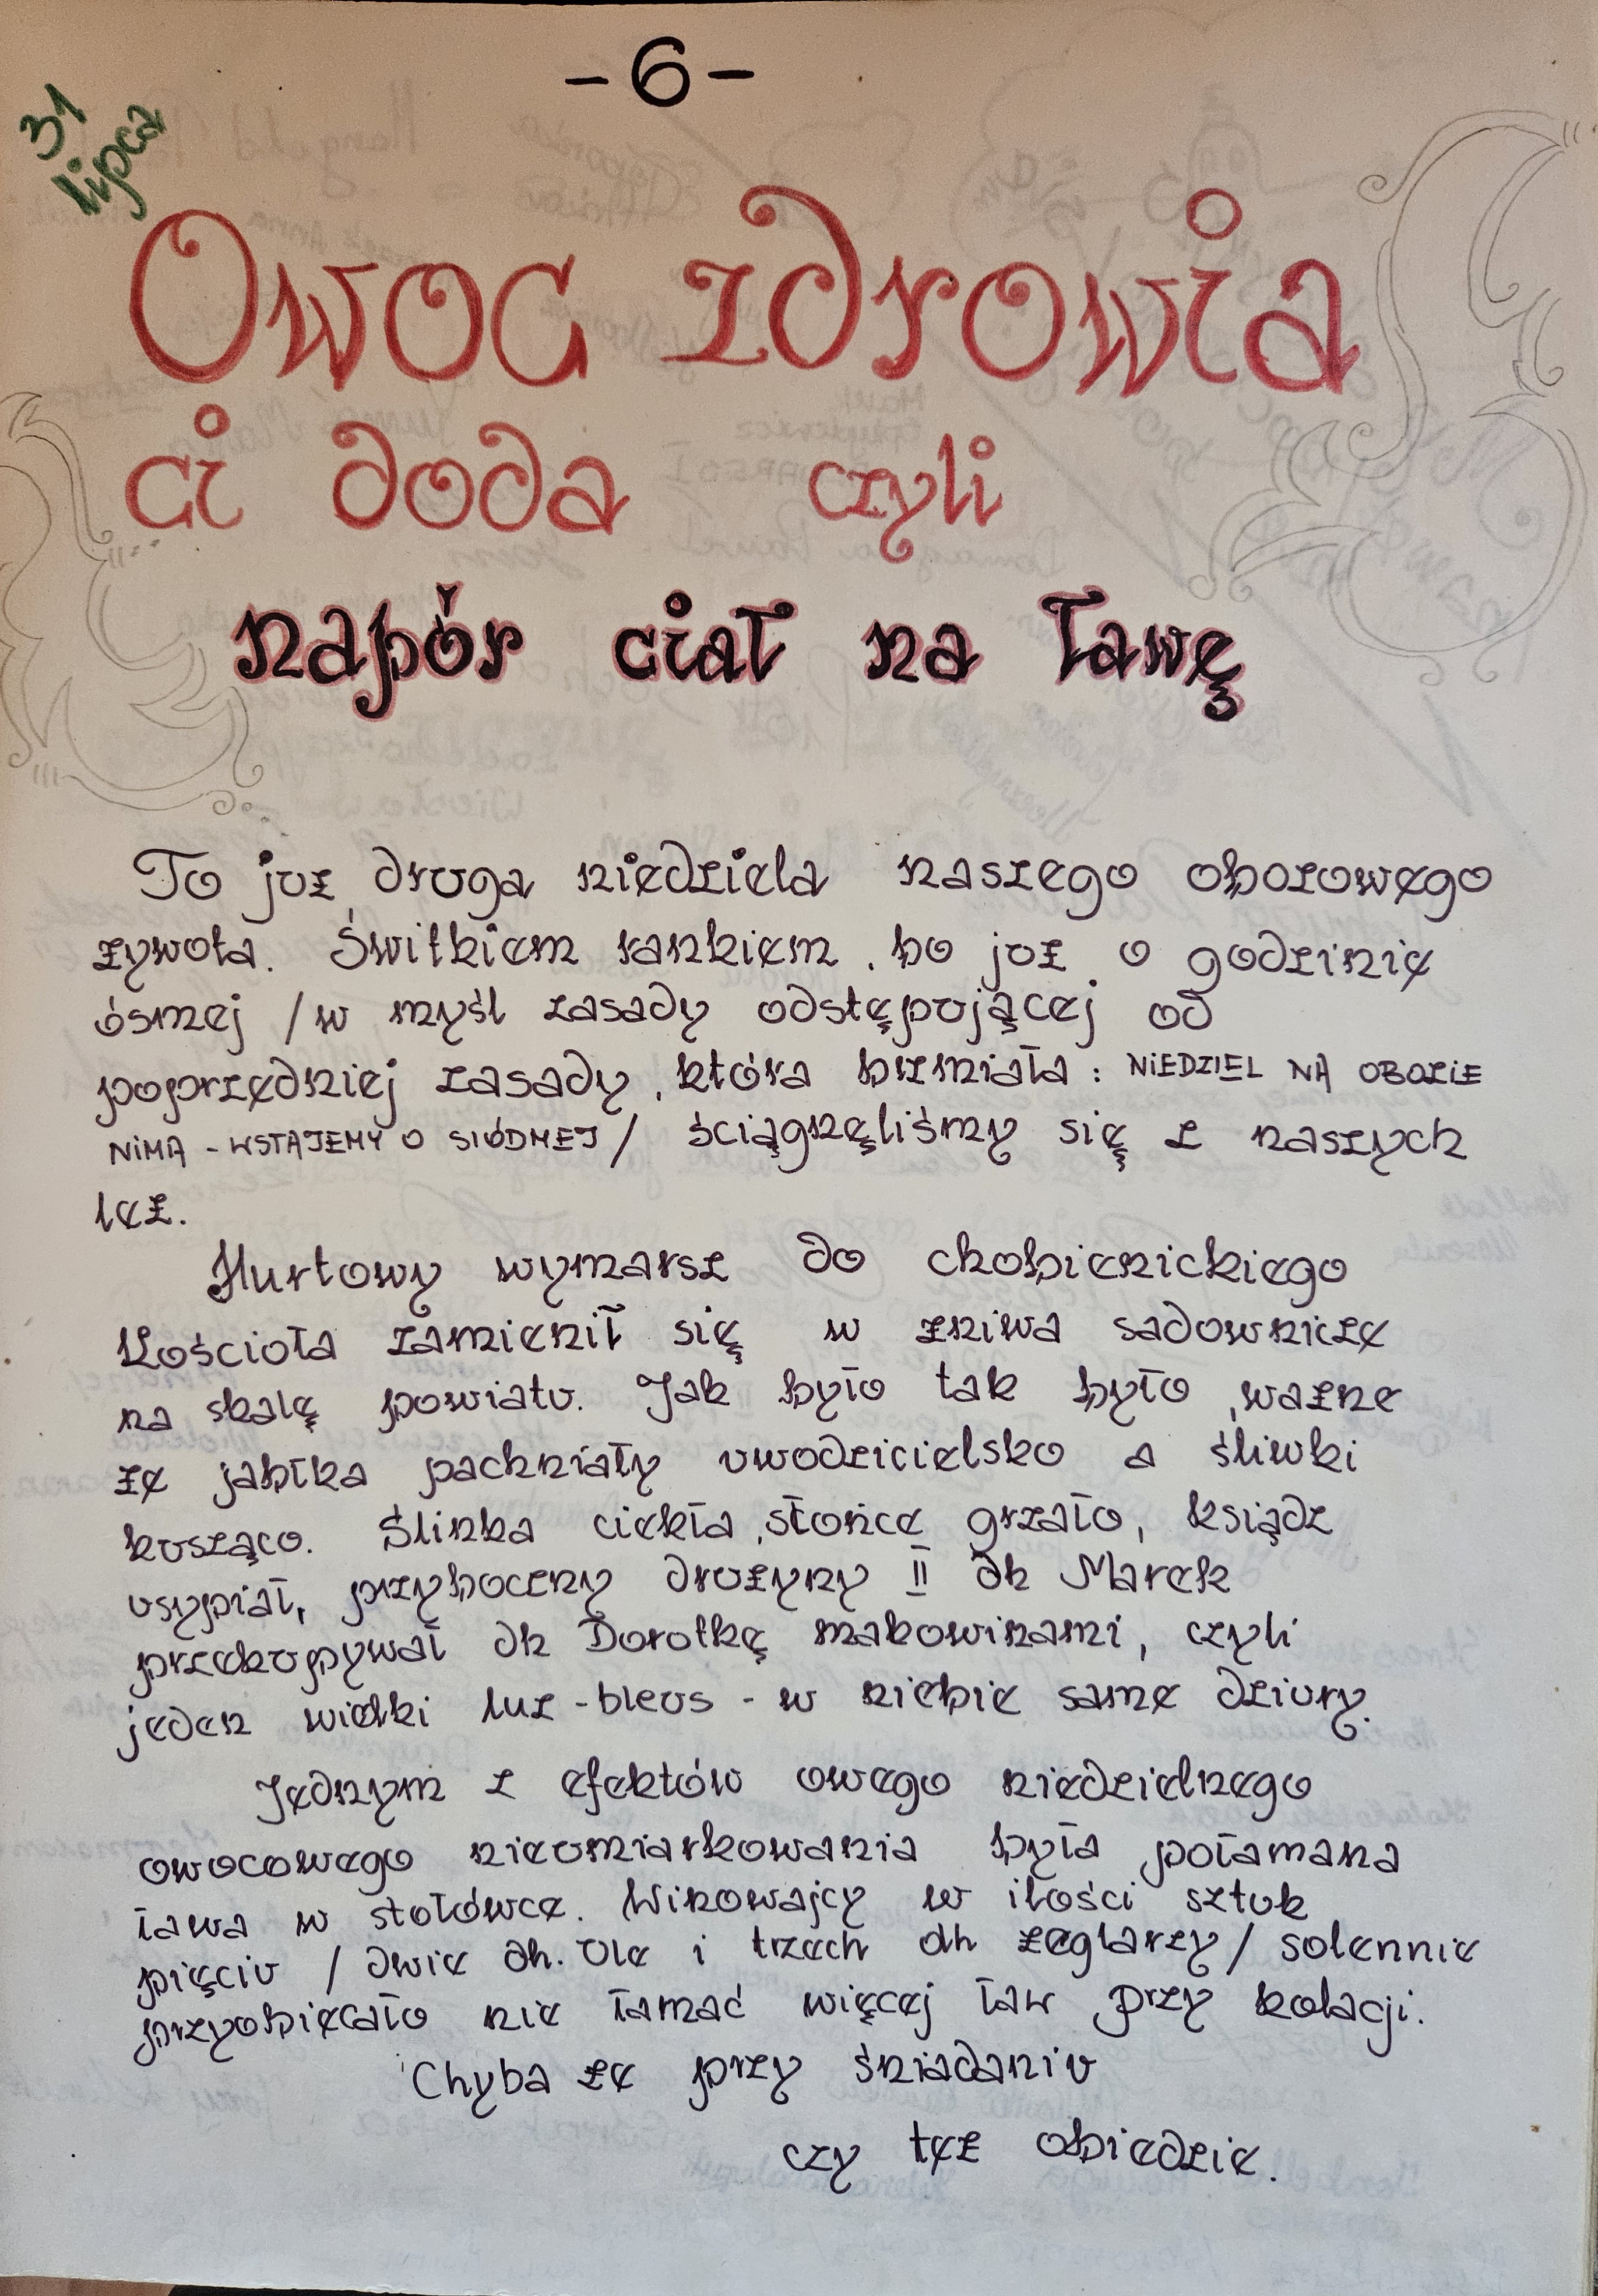 -6-
31
lipca
Owoc zdrowia
ci doda czyli
napór ciał na ławę
To już druga niedziela naszego obozowego
żywota. Świtkiem rankiem, bo już o godzinie
ósmej /w myśl zasady odstępującej od
poprzedniej zasady, która brzmiała: NIEDZIEL NA OBOZIE
NIMA - WSTAJEMY O SIÓDMEJ/ ściągnęliśmy się z naszych
leż.
Hurtowy wymarsz do chobienickiego
kościoła zamienił się w żniwa sadownicze
na skalę powiatu. Jak było tak było, ważne
że jabłka pachniały uwodzicielsko a śliwki
kusząco. Ślinka ciekła, słońce grzało, ksiądz
usypiał, przyboczny drużyny II dh Marek
przekupywał dh Dorotkę makowinami, czyli
jeden wielki luz-bleus - w niebie same dziury.
Jednym z efektów owego niedzielnego
owocowego nieumiarkowania była połamana
ława w stołówce. Winowajcy w ilości sztuk
pięciu / dwie dh. Ule i trzech dh żeglarzy/ solennie
przyobiecało nie łamać więcej ław przy kolacji.
Chyba że przy śniadaniu
czy też obiedzie.